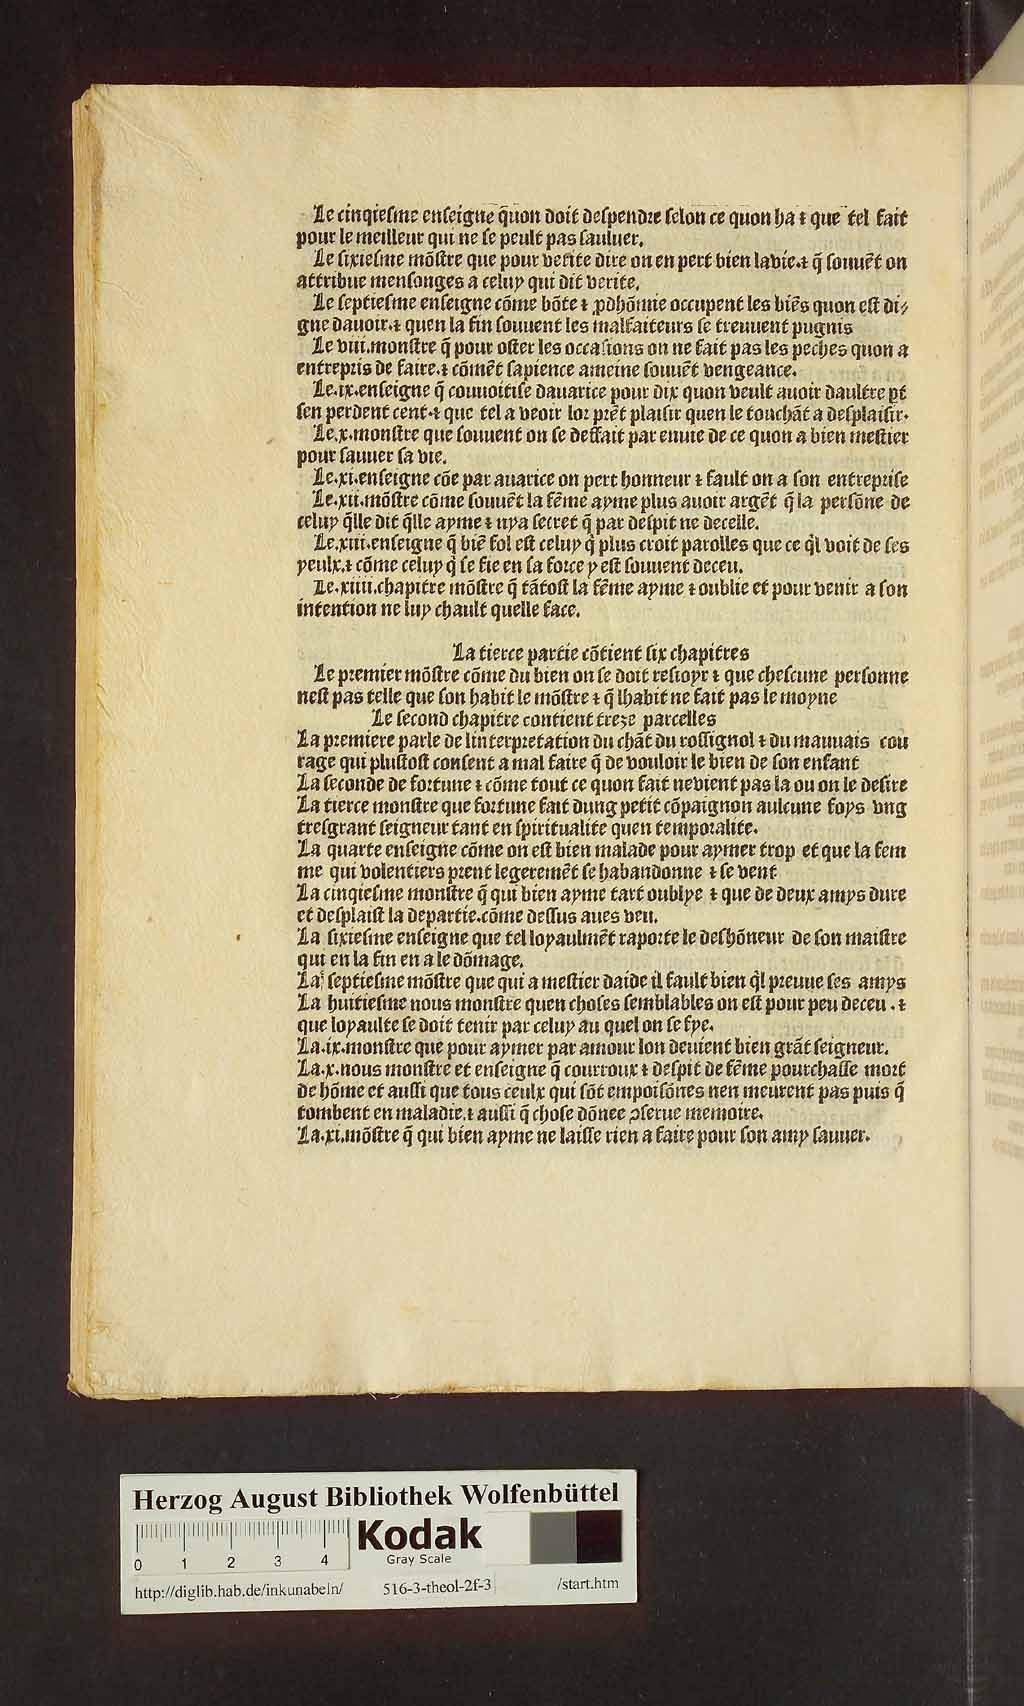 Le cinqieſme enſeigne q̄uon doit deſpendre ſelon ce quon ha ⁊ que tel fait
pour le meilleur qui ne ſe peult pas ſauluer.
Le ſixieſme mõſtre que pour verite dire on en pert bien lavie.⁊ q̃ ſouuẽt on
attribue menſonges a celuy qui dit verite.
Le ſeptieſme enſeigne cõme bõte ⁊ ꝓdhõmie occupent les biẽs quon eſt di⸗
gne dauoir.⁊ quen la fin ſouuent les malfaiteurs ſe treuuent pugnis
Le viii.monſtre q̃ pour oſter les occaſions on ne fait pas les peches quon a
entrepris de faire.⁊ cõmẽt ſapience ameine ſouuẽt vengeance.
Le.ix.enſeigne q̃ couuoitiſe dauarice pour dix quon veult auoir daultre ꝑt
ſen perdent cent.⁊ que tel a veoir lor prẽt plaiſir quen le touchãt a deſplaiſir.
Le.x.monſtre que ſouuent on ſe deffait par enuie de ce quon a bien meſtier
pour ſauuer ſa vie.
Le.xi.enſeigne cõe par auarice on pert honneur ⁊ fault on a ſon entrepriſe
Le.xii.mõſtre cõme ſouuẽt la fẽme ayme plus auoir argẽt q̃ la perſõne de
celuy q̃lle dit q̃lle ayme ⁊ nya ſecret q̃ par deſpit ne decelle.
Le.xiii.enſeigne q̃ biẽ fol eſt celuy q̇ plus croit parolles que ce q̇l voit de ſes
yeulx.⁊ cõme celuy q̇ ſe fie en ſa force y eſt ſouuent deceu.
Le.xiiii.chapitre mõſtre q̃ tãtoſt la fẽme ayme ⁊ oublie et pour venir a ſon
intention ne luy chault quelle face.
La tierce partie cõtient ſix chapitres
Le premier mõſtre cõme du bien on ſe doit reſioyr ⁊ que cheſcune perſonne
neſt pas telle que ſon habit le mõſtre ⁊ q̃ lhabit ne fait pas le moyne
Le ſecond chapitre contient treze parcelles
La premiere parle de linterpretation du chãt du roſſignol ⁊ du mauuais cou
rage qui pluſtoſt conſent a mal faire q̃ de vouloir le bien de ſon enfant
La ſeconde de fortune ⁊ cõme tout ce quon fait nevient pas la ou on le deſire
La tierce monſtre que fortune fait dung petit cõpaignon aulcune foys vng
treſgrant ſeigneur tant en ſpiritualite quen temporalite.
La quarte enſeigne cõme on eſt bien malade pour aymer trop et que la fem
me qui volentiers prent legeremẽt ſe habandonne ⁊ ſe vent
La cinqieſme monſtre q̃ qui bien ayme tart oublye ⁊ que de deux amys dure
et deſplaiſt la departie.cõme deſſus aues veu.
La ſixieſme enſeigne que tel loyaulmẽt raporte le deſhõneur de ſon maiſtre
qui en la fin en a le dõmage.
La ſeptieſme mõſtre que qui a meſtier daide il fault bien q̇l preuue ſes amys
La huitieſme nous monſtre quen choſes ſemblables on eſt pour peu deceu .⁊
que loyaulte ſe doit tenir par celuy au quel on ſe fye.
La.ix.monſtre que pour aymer par amour lon deuient bien grãt ſeigneur.
La.x.nous monſtre et enſeigne q̃ courroux ⁊ deſpit de fẽme pourchaſſe mort
de hõme et auſſi que tous ceulx qui ſõt empoiſõnes nen meurent pas puis q̃
tombent en maladie.⁊ auſſi q̃ choſe dõnee ꝯſerue memoire.
La.xi.mõſtre q̃ qui bien ayme ne laiſſe rien a faire pour ſon amy ſauuer.
Herzog August Bibliothek Wolfenbüttel
Kodak
Gray Scale
0 1 2 3 4
http://diglib.hab.de/inkunabeln/ 516-3-theol-2f-3 /start.htm